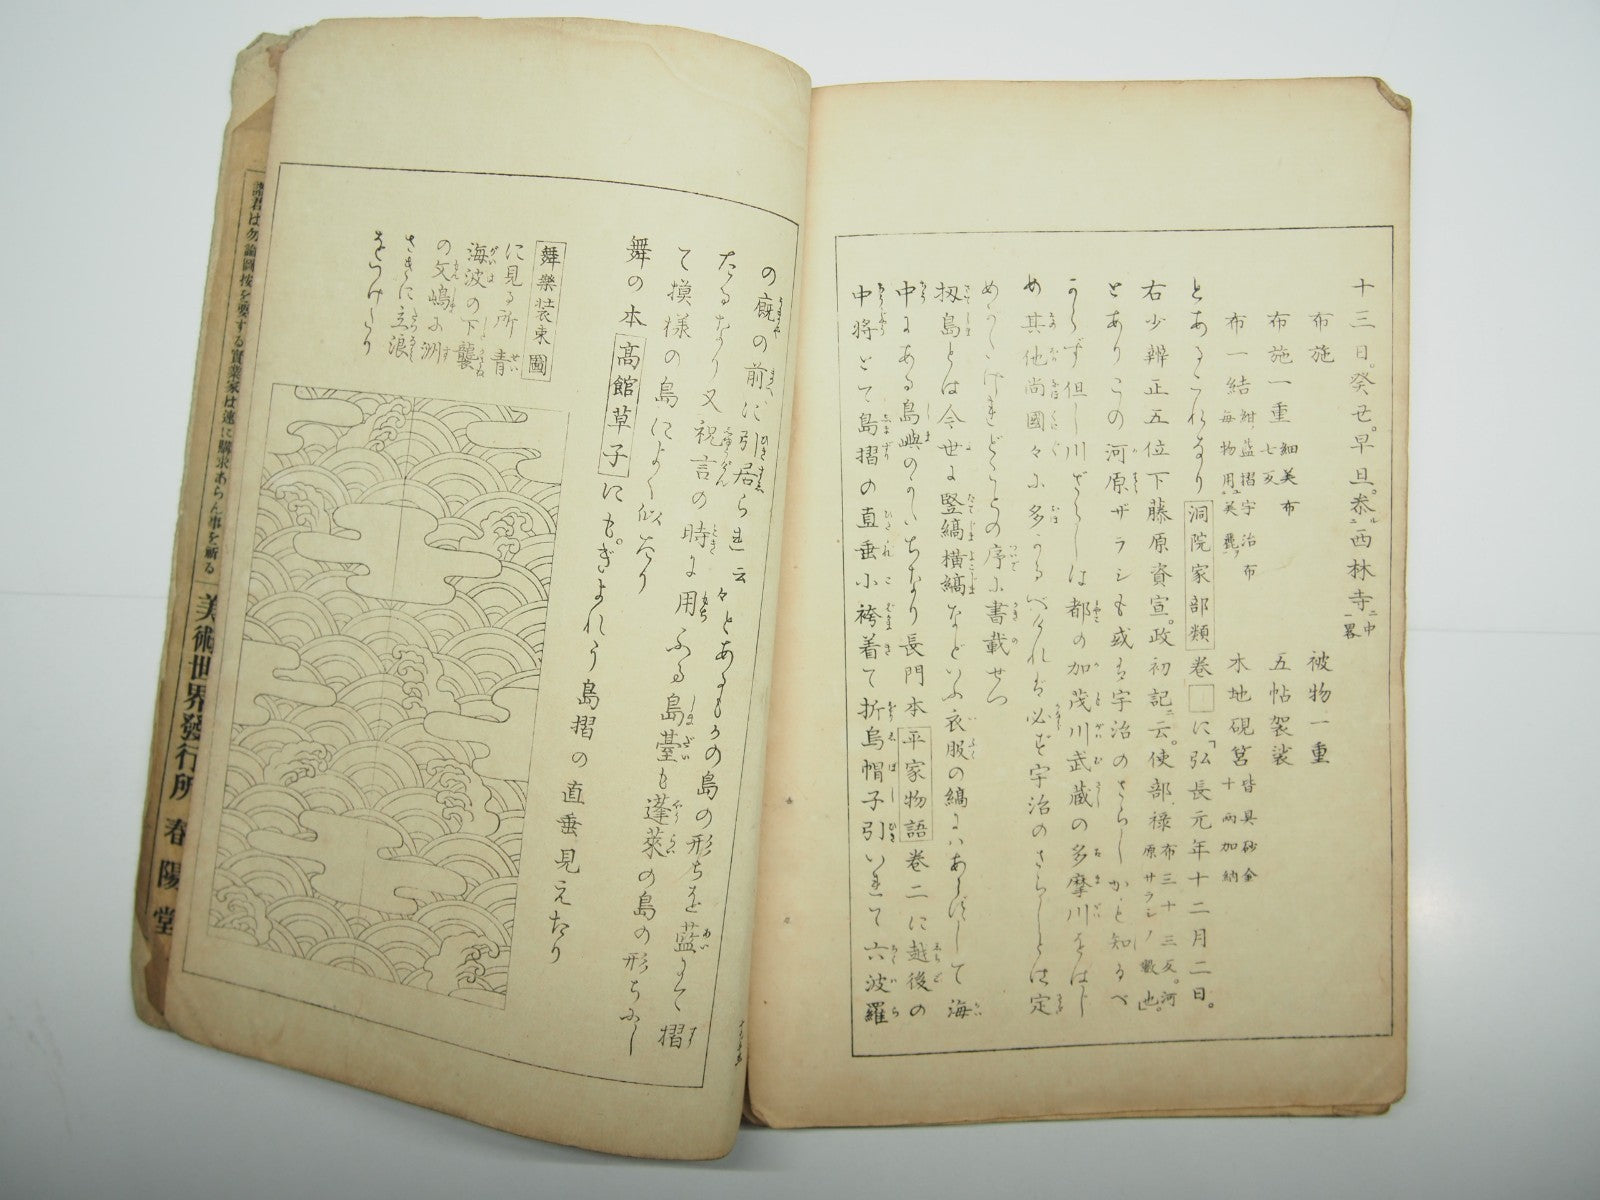 十三日。癸丑。早旦。参ル西林寺ニ 中畧
布施　被物一重
布施一重 細美布七反　五帖袈裟
布一結 紺藍摺宇治布 毎物用美麗　木地硯筥 皆具砂金十両加納
とあるこれなり洞院家部類巻□に「弘長元年十二月二日。
右少辨正五位下藤原資宣。政初記ニ云。使部、禄布三十三反。河原サラシノ數也。
とありこの河原ザラシも或は宇治のさらしかと知るべ
からず但し川ざらしは都の加茂川武蔵の多摩川をはじ
め其他尚國々に多かるべければ必ず宇治のさらしとは定
めがたけれどことの序に書載せつ
扨島とは今世に竪縞横縞などいふ衣服の縞にはあらずして海
中にある島嶼のかたちなり長門本平家物語巻二に越後の
中将とて島摺の直垂小袴着て折烏帽子引いれて六波羅
の廐の前に引居られ云々とあるもかの島の形ちを藍にて摺
たるなり又祝言の時に用ふる島臺も蓬莱の島の形ちにし
て摸様の島によく似たり
舞の本高館草子にも。ぎよれう島摺の直垂見えたり
舞樂装束圖
に見る所青
海波の下襲
の文嶋に洲
さきに立浪
をつけたり
諸君は勿論圖按を要する實業家は速に購求あらん事を祈る
美術世界發行所　春陽堂